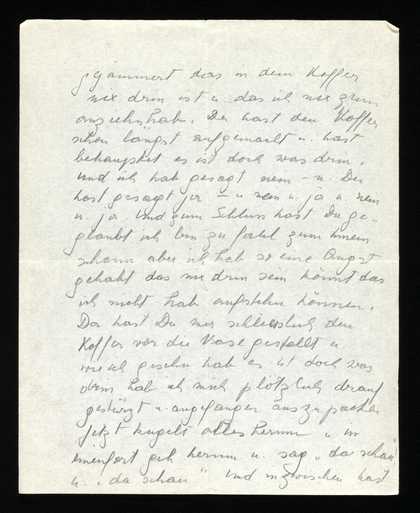 gejammert das in dem Koffer
nix drin ist u. das ich nix zum
anziehn hab. Du hast den Koffer
schon längst aufgemacht u. hast
behauptet es ist doch was drin,
und ich hab gesagt nein – u. Du
hast gesagt ja – u nein u. ja u nein
u. ja. Und zum Schluss hast Du ge-
glaubt ich bin zu faul zum
schaun aber ich hab so eine Angst
gehabt das nix drin sein könnt das
ich nicht hab aufstehn können.
Da hast Du mir schliesslich den
Koffer vor die Nase gestellt u
wie ich gesehn hab es ist doch was
drin hab ich mich plötzlich darauf
gestürzt u. angefangen auszupacken
jetzt kugelt alles herum u. in
einemfort geh herum u. sag „da schau
u. „da schau“ Und inzwischen hast